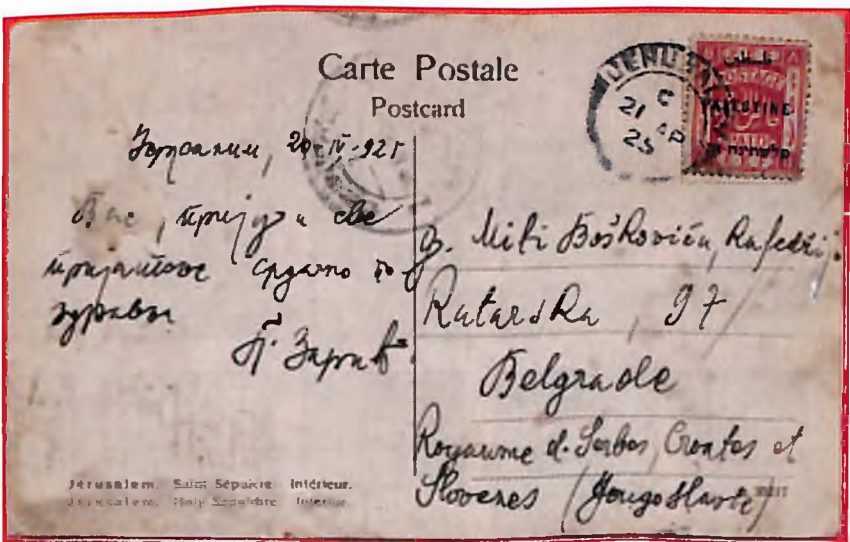 Carte Postale
Postcard
JERU
C
21 AP
25
PALESTINE
Јерусалим, 20-IV-925
Вас, Прију и све
пријатеље срдачно по
здравља
П. Зарић
G. Miti Boškoviću, Kafedžiji
Ratarska, 97
Belgrade
Royaume d. Serbes, Croates et
Slovenes (Yougoslavie)
Jérusalem. Saint Sépulcre Intérieur.
Jerusalem. Holy Sepulchre Interior.